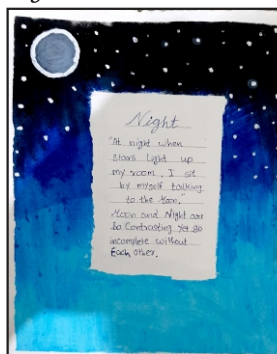 Night
"At night when
stars light up
my room, I sit
by myself talking
to the Moon."
Moon and Night are
So Contrasting Yet so
incomplete without
Each other.